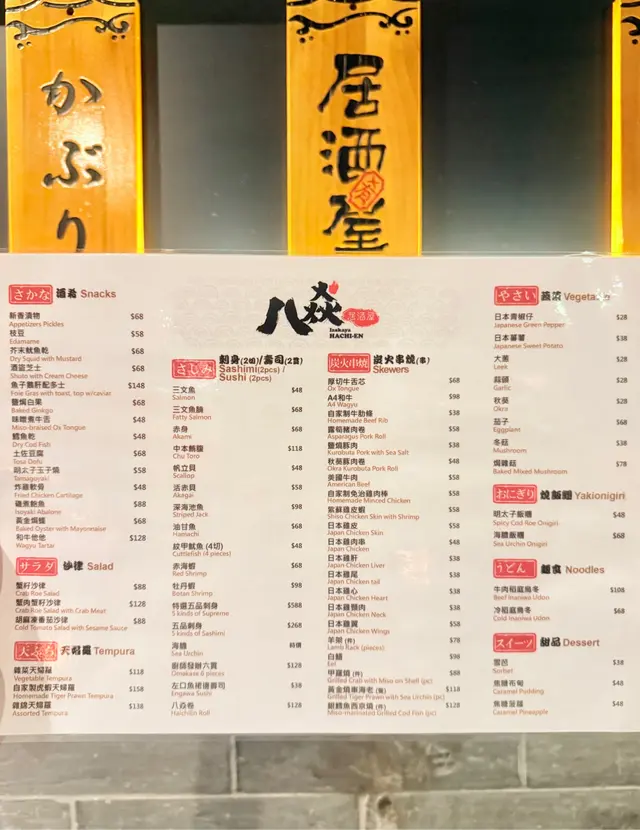 かぶり
居酒屋
八焱
居酒屋
Izakaya
HACHI-EN
さかな 酒肴 Snacks
新香漬物 $68
Appetizers Pickles
枝豆 $58
Edamame
芥末魷魚乾 $68
Dry Squid with Mustard
酒盜芝士 $68
Shuto with Cream Cheese
魚子鵝肝配多士 $148
Foie Gras with toast, top w/caviar
鹽焗白果 $68
Baked Ginkgo
味噌煮牛舌 $48
Miso-braised Ox Tongue
鱈魚乾 $48
Dry Cod Fish
土佐豆腐 $68
Tosa Dofu
明太子玉子燒 $58
Tamagoyaki
炸雞軟骨 $48
Fried Chicken Cartilage
磯煮鮑魚 $88
Isoyaki Abalone
黃金焗蠔 $68
Baked Oyster with Mayonnaise
和牛他他 $128
Wagyu Tartar
サラダ 沙律 Salad
蟹籽沙律 $88
Crab Roe Salad
蟹肉蟹籽沙律 $128
Crab Roe Salad with Crab Meat
胡麻凍番茄沙律 $88
Cold Tomato Salad with Sesame Sauce
天ぷら 天婦羅 Tempura
雜菜天婦羅 $118
Vegetable Tempura
自家製虎蝦天婦羅 $158
Homemade Tiger Prawn Tempura
雜錦天婦羅 $138
Assorted Tempura
さしみ 刺身(2切)/壽司(2貫)
Sashimi(2pcs) /
Sushi (2pcs)
三文魚 $48
Salmon
三文魚腩 $68
Fatty Salmon
赤身 $68
Akami
中本鮪腩 $118
Chu Toro
帆立貝 $48
Scallop
活赤貝 $58
Akagai
深海池魚 $98
Striped Jack
油甘魚 $68
Hamachi
紋甲魷魚 (4切) $48
Cuttlefish (4 pieces)
赤海蝦 $68
Red Shrimp
牡丹蝦 $98
Botan Shrimp
特選五品刺身 $588
5 kinds of Supreme
五品刺身 $268
5 kinds of Sashimi
海膽 時價
Sea Urchin
廚師發辦六貫 $128
Omakase 6 pieces
左口魚裙邊壽司 $38
Engawa Sushi
八焱卷 $128
HachiEn Roll
炭火串燒 炭火串燒(串)
Skewers
厚切牛舌芯 $68
Ox Tongue
A4和牛 $98
A4 Wagyu
自家制牛肋條 $38
Homemade Beef Rib
露荀豬肉卷 $58
Asparagus Pork Roll
鹽燒豚肉 $38
Kurobuta Pork with Sea Salt
秋葵豚肉卷 $48
Okra Kurobuta Pork Roll
美國牛肉 $58
American Beef
自家制免治雞肉棒 $58
Homemade Minced Chicken
紫蘇雞皮蝦 $58
Shiso Chicken Skin with Shrimp
日本雞皮 $58
Japan Chicken Skin
日本雞肉串 $48
Japan Chicken
日本雞肝 $38
Japan Chicken Liver
日本雞尾 $38
Japan Chicken tail
日本雞心 $38
Japan Chicken Heart
日本雞頸肉 $38
Japan Chicken Neck
日本雞翼 $58
Japan Chicken Wings
羊架 (件) $78
Lamb Rack (pieces)
白鱔 $98
Eel
甲羅燒 (件) $88
Grilled Crab with Miso on Shell (pc)
黃金燒車海老 (隻) $118
Grilled Tiger Prawn with Sea Urchin (pc)
銀鱈魚西京燒 (件) $128
Miso-marinated Grilled Cod Fish (pc)
やさい 蔬菜 Vegetable
日本青椒仔 $28
Japanese Green Pepper
日本蕃薯 $38
Japanese Sweet Potato
大蔥 $28
Leek
蒜頭 $28
Garlic
秋葵 $28
Okra
茄子 $68
Eggplant
冬菇 $38
Mushroom
焗雜菇 $78
Baked Mixed Mushroom
おにぎり 燒飯糰 Yakionigiri
明太子飯糰 $48
Spicy Cod Roe Onigiri
海膽飯糰 $68
Sea Urchin Onigiri
うどん 麵食 Noodles
牛肉稻庭烏冬 $108
Beef Inaniwa Udon
冷稻庭烏冬 $68
Cold Inaniwa Udon
スイーツ 甜品 Dessert
雪芭 $38
Sorbet
焦糖布甸 $48
Caramel Pudding
焦糖菠蘿 $48
Caramel Pineapple